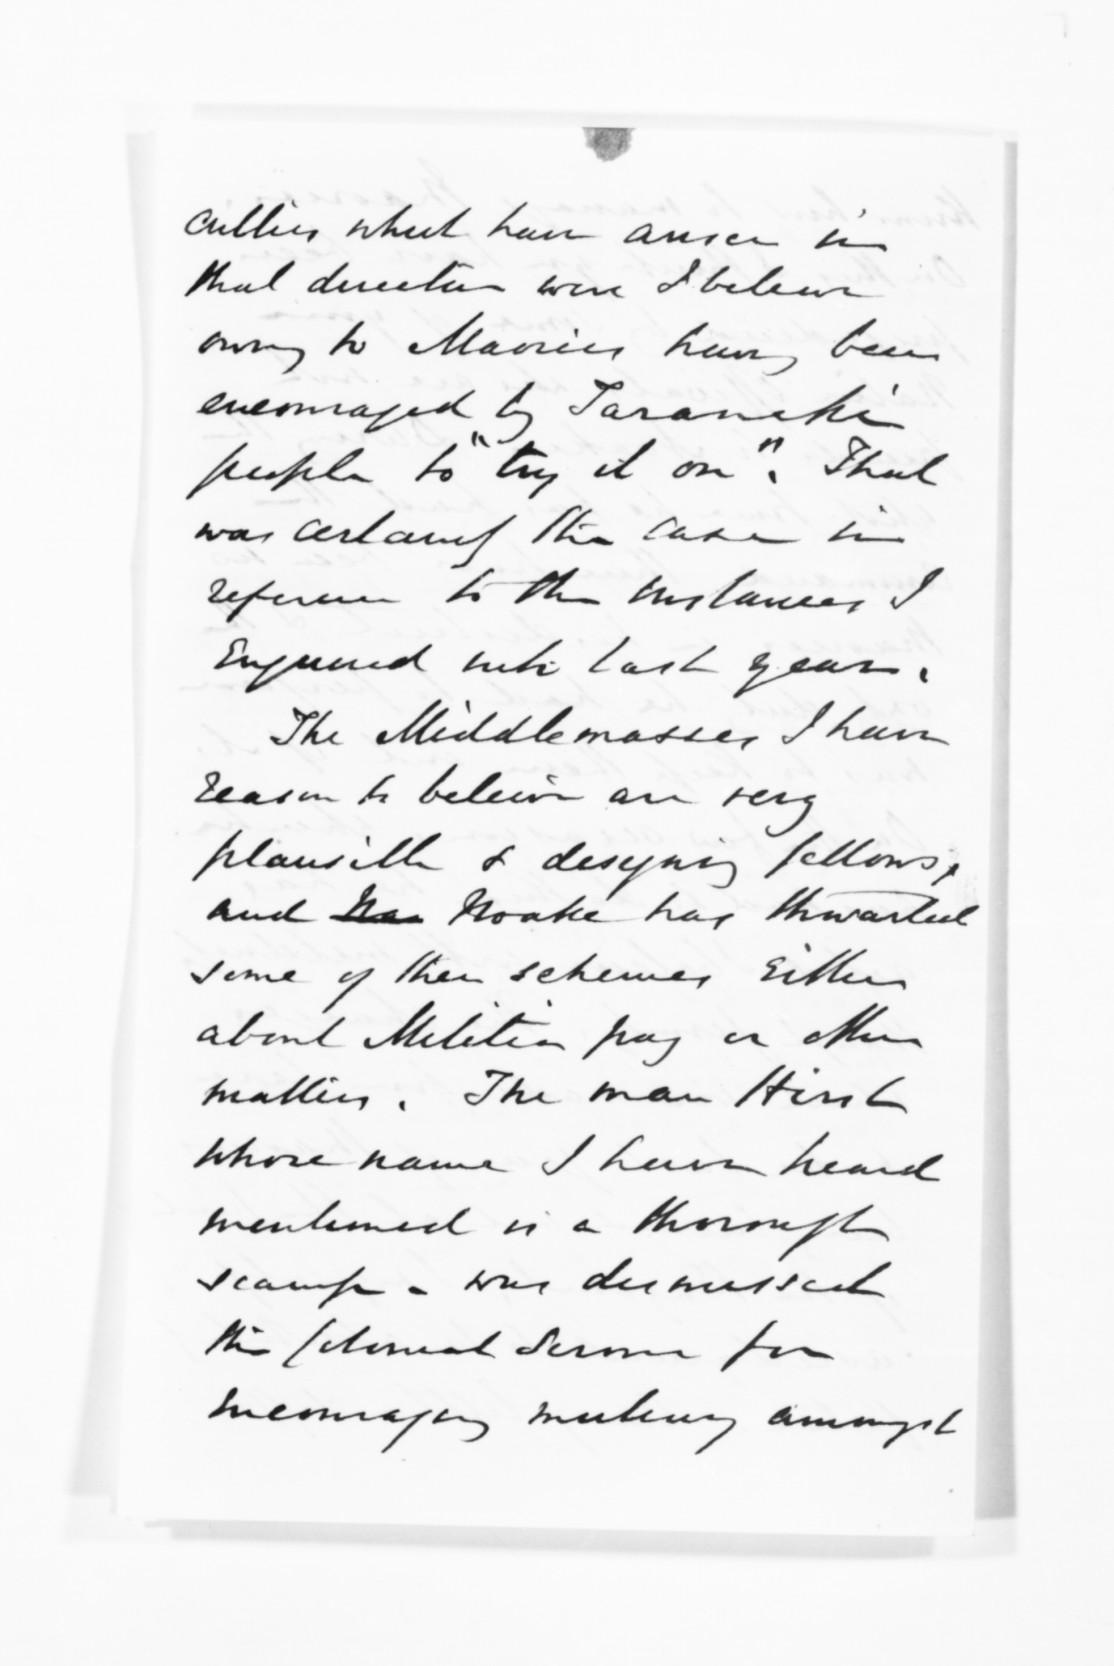 culties which have arisen in
that direction were I believe
owing to Maories having been
encouraged by Taranaki
people to "try it on". That
was certainly the case in
reference to the instances I
Enquired into last year.
The Middlemasses I have
reason to beleive are very
plausible & designing fellows,
and Noake has thwarted
some of their schemes Either
about Militia pay or other
matters. The man Hirst
whose name I have heard
mentioned is a thorough
scamp - was dismissed
the Colonial Service for
incouraging mutiny amongst